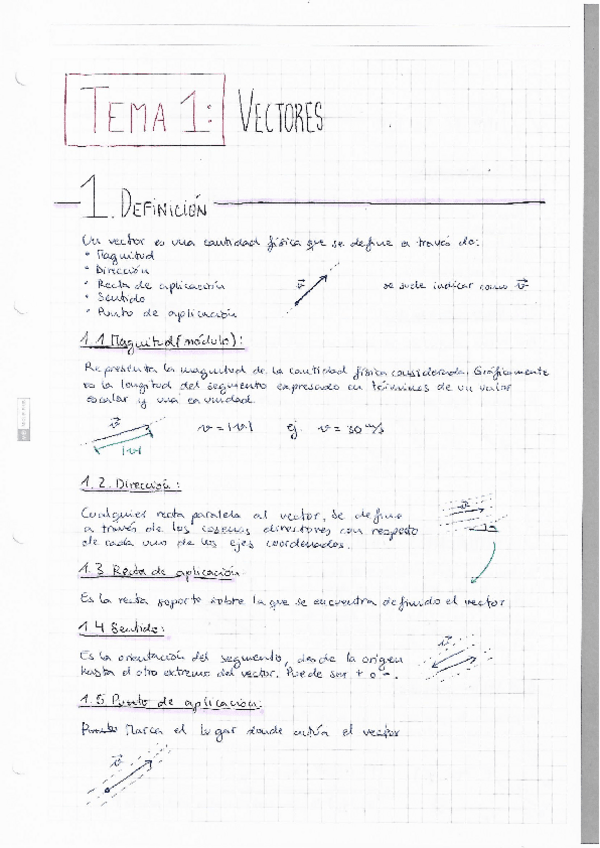 TEMA 1: VECTORES
1. DEFINICIÓN
Un vector es una cantidad física que se define a través de:
• Magnitud
• Dirección
• Recta de aplicación
• Sentido
• Punto de aplicación
v⃗
se suele indicar como v⃗
1.1 Magnitud (módulo):
Representa la magnitud de la cantidad física considerada. Gráficamente
es la longitud del segmento expresado en términos de un valor
escalar y una unidad.
v⃗
|v|
v = |v| ej. v = 30 m/s
1.2. Dirección:
Cualquier recta paralela al vector, se define
a través de los cosenos directores con respecto
de cada uno de los ejes coordenados.
1.3 Recta de aplicación
Es la recta soporte sobre la que se encuentra definido el vector
1.4 Sentido:
Es la orientación del segmento, desde la origen
hasta el otro extremo del vector. Puede ser + o -.
v⃗
1.5 Punto de aplicación:
Marca el lugar donde actúa el vector
v⃗